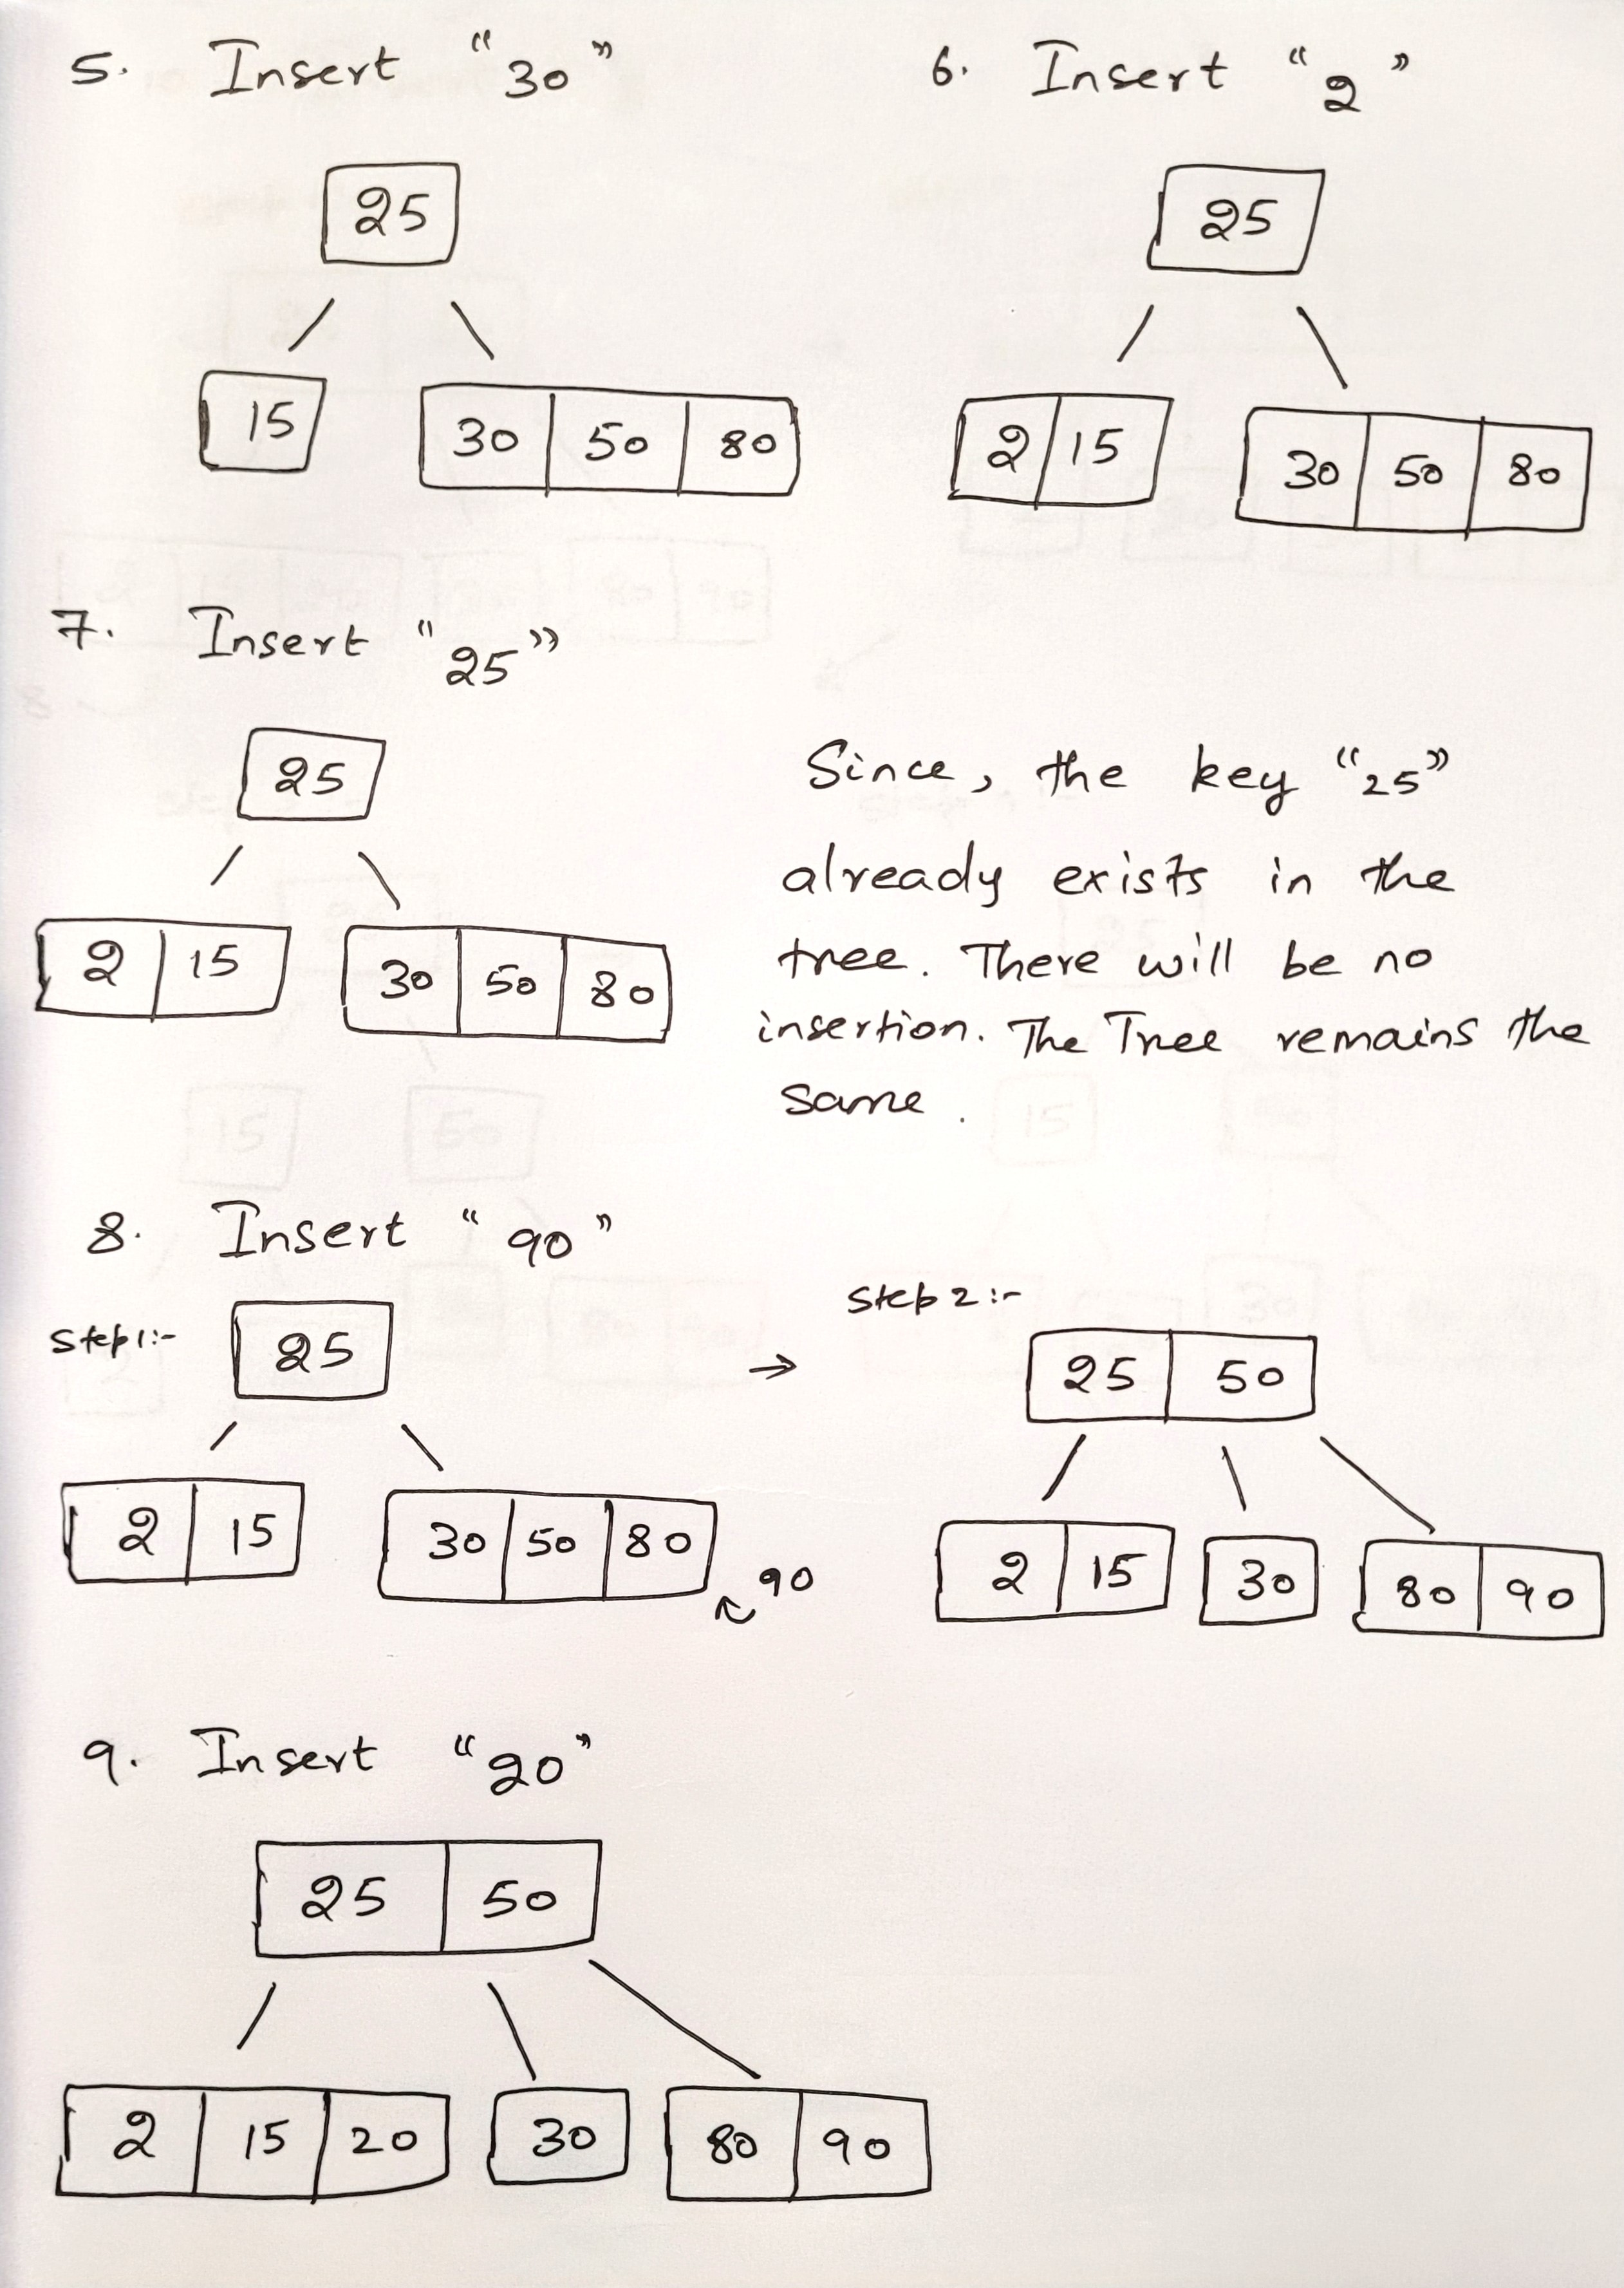 5. Insert "30"
25
15 30 50 80
6. Insert "2"
25
2 15 30 50 80
7. Insert "25"
25
2 15 30 50 80
Since, the key "25"
already exists in the
tree. There will be no
insertion. The Tree remains the
same.
8. Insert "90"
Step 1:-
25
2 15 30 50 80
90
→
Step 2:-
25 50
2 15 30 80 90
9. Insert "20"
25 50
2 15 20 30 80 90